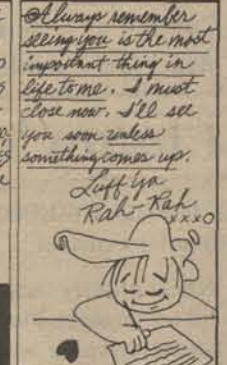 Always remember
seeing you is the most
important thing in
life to me. I must
close now. I'll see
you soon unless
something comes up.
Luff Ya
Rah-Rah
xxxO